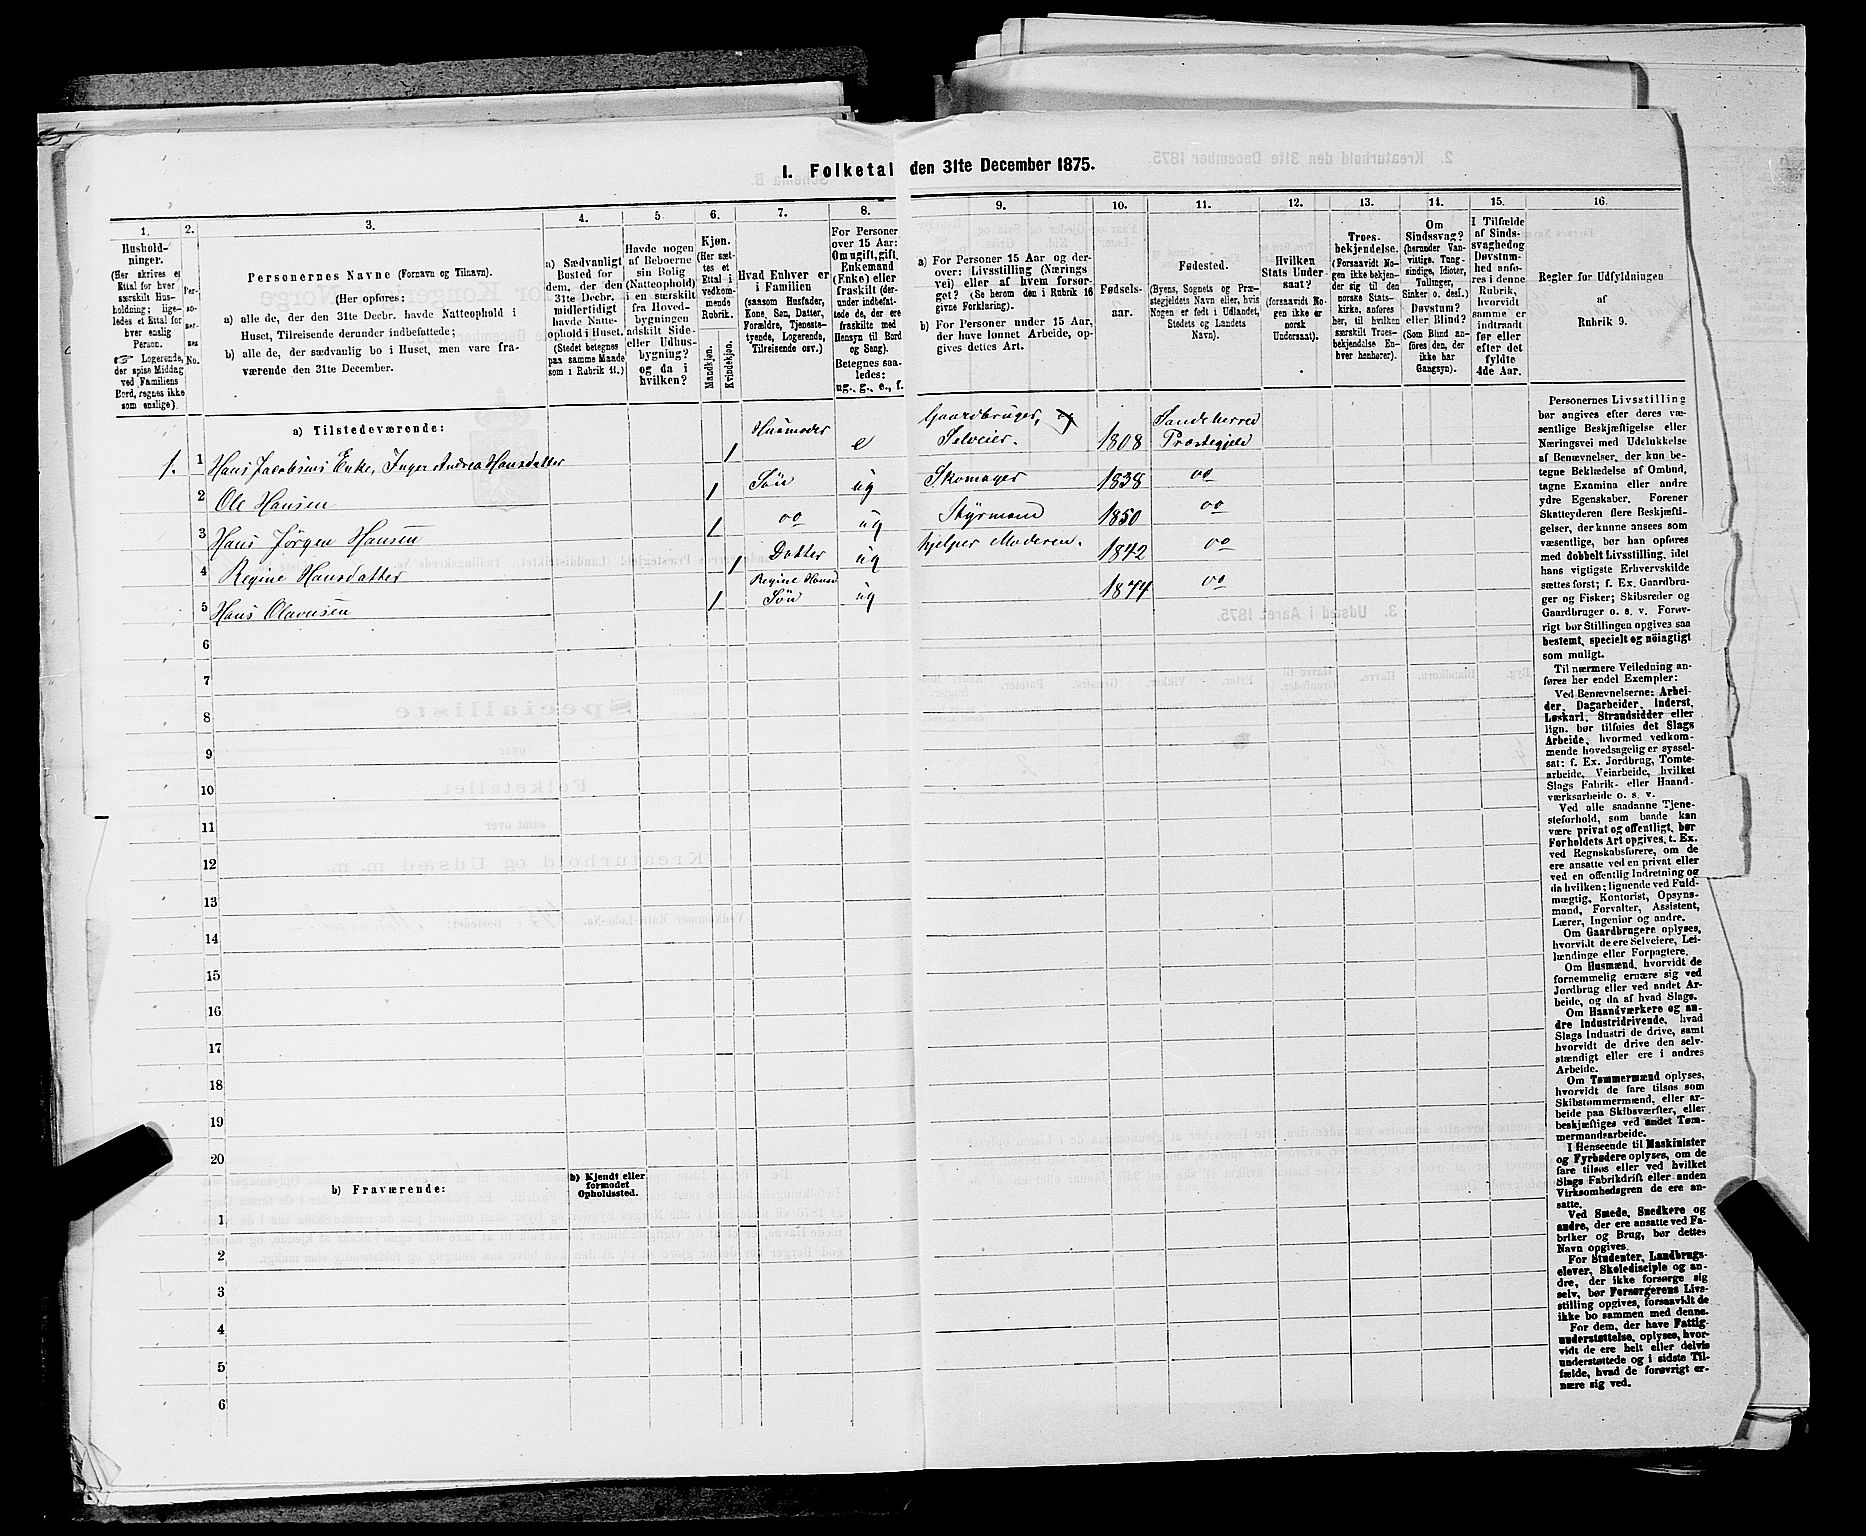 I. Folketal den 31te December 1875.
1. 2. 3. 4. 5 6. 7. 8. 9. 10. 11. 12. 13. 14. 15. 16.
Hushold-
ninger.
(Her skrives et
Ettal for hver
særskilt Hus-
holdning; lige-
ledes et Ettal for
hver enslig
Person.
☞ Logerende,
der spise Middag
ved Familiens
Bord, regnes ikke
som enslige).
Per-
so-
ner-
nes
No.
Personernes Navne (Fornavn og Tilnavn).
(Her opføres:
a) alle de, der den 31te Decbr. havde Natteophold i
Huset, Tilreisende derunder indbefattede;
b) alle de, der sædvanlig bo i Huset, men vare fra-
værende den 31te December.
a) Sædvanligt
Bosted for
dem, der den
31te Decbr.
midlertidigt
havde Natte-
ophold i Huset.
(Stedet betegnes
paa samme Maade
som i Rubrik 11.)
Havde nogen
af Beboerne
sin Bolig
(Natteophold)
i en særskilt
fra Hoved-
bygningen
adskilt Side-
eller Udhus-
bygning?
og da i
hvilken?
Kjøn.
(Her sæt-
tes et
Ettal i
vedkom-
mende
Rubrik.
Mandkjøn.
Kvindekjøn.
Hvad Enhver er
i Familien
(saasom Husfader,
Kone, Søn, Datter,
Forældre, Tjeneste-
tyende, Logerende,
Tilreisende osv.)
For Personer
over 15 Aar:
Om ugift, gift,
Enkemand
(Enke) eller
fraskilt (der-
under indbefat-
tede de, der ere
fraskilte med
Hensyn til Bord
og Seng).
Betegnes saa-
ledes:
ug., g., e., f.
a) For Personer 15 Aar og der-
over: Livsstilling (Nærings
vei) eller af hvem forsør-
get? (Se herom den i Rubrik 16
givne Forklaring).
b) For Personer under 15 Aar,
der have lønnet Arbeide, op-
gives dettes Art.
Fødsels-
aar.
Fødested.
(Byens, Sognets og Præ-
stegjeldets Navn eller, hvis
Nogen er født i Udlandet,
Stedets og Landets
Navn).
Hvilken
Stats Under-
saat?
(forsaavidt No-
gen ikke er
norsk
Undersaat).
Troes-
bekjendelse.
(Forsaavidt No-
gen ikke bekjen-
der sig til den
norske Stats-
kirke, anføres
her, til hvilken
særskilt Troes-
bekjendelse En-
hver henhører).
Om
Sindssvag?
(herunder Van-
vittige, Tung-
sindige, Idioter,
Tullinger,
Sinker o. desl.)
Døvstum?
eller Blind?
(Som Blind an-
føres den, der
ikke har
Gangsyn).
I Tilfælde
af Sinds-
svaghed og
Døvstum-
hed anfø-
res i denne
Rubrik,
hvorvidt
samme er
indtraadt
før eller
efter det
fyldte
4de Aar.
Regler for Udfyldningen
af
Rubrik 9.
a) Tilstedeværende:
1. 1 Hans Jacobsens Enke, Inger Andrea Hansdatter 1 Husmoder e Gaardbruger, og Selveier. 1808 Sandeherred Præstegjeld
2 Ole Hansen 1 Søn ug Skomager 1838 oo
3 Hans Jørgen Hansen 1 oo ug Styrmand 1850 oo
4 Regine Hansdatter 1 Datter ug hjelper Moderen. 1842 oo
5 Hans Olavesen 1 Regine Hansd Søn ug 1874 oo
6
7
8
9
10
11
12
13
14
15
16
17
18
19
20
b) Fraværende:
b) Kjendt eller
formodet
Opholdssted.
1
2
3
4
5
6
Personernes Livsstilling
bør angives efter deres væ-
sentlige Beskjæftigelse eller
Næringsvei med Udelukkelse
af Benævnelser, der kun be-
tegne Beklædelse af Ombud,
tagne Examina eller andre
ydre Egenskaber. Forener
Skatteyderen flere Beskjæfti-
gelser, der kunne ansees som
væsentlige, bør han opføres
med dobbelt Livsstilling, idet
hans vigtigste Erhvervskilde
sættes først; f. Ex. Gaardbru-
ger og Fisker; Skibsreder og
Gaardbruger o. s. v. Forøv-
rigt bør Stillingen opgives saa
bestemt, specielt og nøiagtigt
som muligt.
Til nærmere Veiledning an-
føres her endel Exempler:
Ved Benævnelserne: Arbei-
der, Dagarbeider, Inderst,
Løskarl, Strandsidder eller
lign. bør tilføies det Slags
Arbeide, hvormed vedkom-
mende hovedsagelig er syssel-
sat; f. Ex. Jordbrug, Tomte-
arbeide, Veiarbeide, hvilket
Slags Fabrik- eller Haand-
værksarbeide o. s. v.
Ved alle saadanne Tjene-
steforhold, som baade kan
være privat og offentligt, bør
Forholdets Art opgives, t. Ex.
ved Regnskabsførere, om de
ere ansatte ved en privat eller
ved en offentlig Indretning og
da hvilken; lignende ved Fuld-
mægtig, Kontorist, Opsyns-
mand, Forvalter, Assistent,
Lærer, Ingeniør og andre.
Om Gaardbrugere oplyses,
hvorvidt de ere Selveiere, Lei-
lændinge eller Forpagtere.
Om Husmænd, hvorvidt de
fornemmelig ernære sig ved
Jordbrug eller ved andet Ar-
beide, og da af hvad Slags.
Om Haandværkere og an-
dre Industridrivende, hvad
Slags Industri de drive, samt
hvorvidt de drive den selv-
stændigt eller ere i andres
Arbeide.
Om Tømmermænd oplyses,
hvorvidt de fare tilsøs som
Skibstømmermænd, eller ar-
beide paa Skibsværfter, eller
beskjæftiges ved andet Tøm-
mermandsarbeide.
I Henseende til Maskinister
og Fyrbødere oplyses, om de
fare tilsøs eller ved hvilket
Slags Fabrikdrift eller anden
Virksomhedsgren de ere an-
satte.
Ved Smede, Snedkere og
andre, der ere ansatte ved Fa-
briker og Brug, bør dettes
Navn opgives.
For Studenter, Landbrugs-
elever, Skoledisciple og an-
dre, der ikke forsørge sig
selv, bør Forsørgerens Livs-
stilling opgives, forsaavidt de
ikke bo sammen med denne.
For dem, der have Fattig-
understøttelse, oplyses, hvor-
vidt de ere helt eller delvis
understøttede og i sidste Til-
fælde, hvad de forøvrigt er-
nære sig ved.